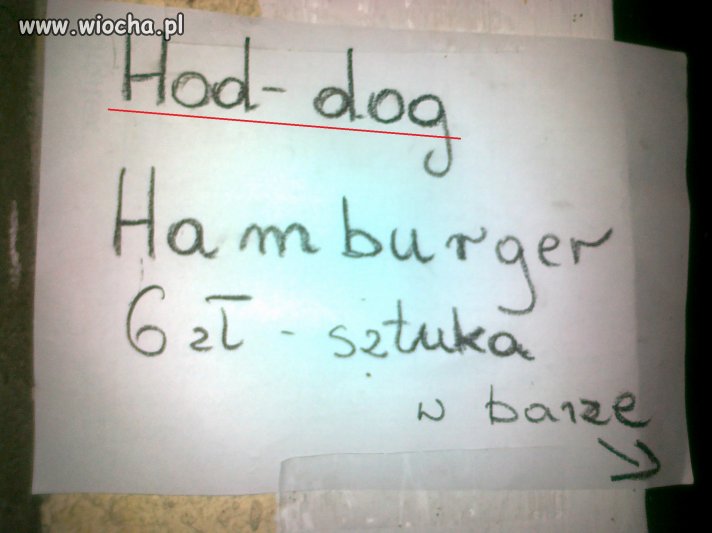 www.wiocha.pl
Hod-dog
Hamburger
6 zł - sztuka
w barze